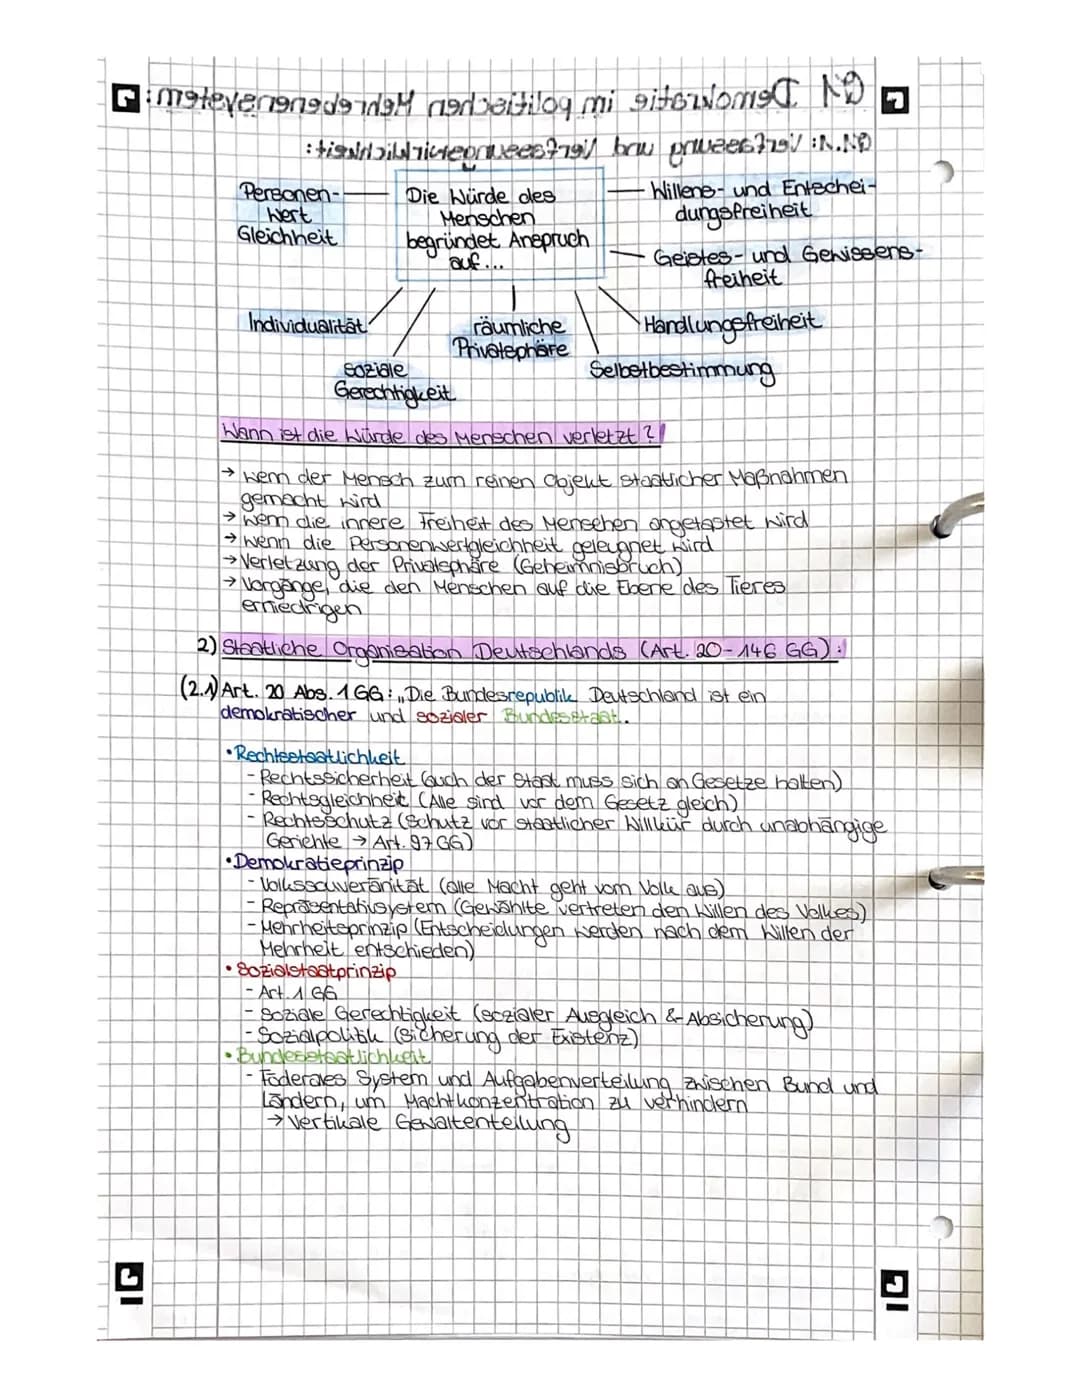 Q1 Demokratie im politischen Mehrebenensystem:
Q1.1: Verfassung und Verfassungswirklichkeit:
Personen-
wert
Gleichheit
Die Würde des
Menschen
begründet Anspruch
auf...
Willens- und Entschei-
dungsfreiheit
Geistes- und Gewissens-
freiheit
Individualität
räumliche
Privatsphäre
Handlungsfreiheit
soziale
Gerechtigkeit
Selbstbestimmung
Wann ist die Würde des Menschen verletzt?
→ wenn der Mensch zum reinen Objekt staatlicher Maßnahmen
gemacht wird
→ wenn die innere Freiheit des Menschen angetastet wird
→ wenn die Personenwertgleichheit geleugnet wird
→ Verletzung der Privatsphäre (Geheimnisbruch)
→ Vorgänge, die den Menschen auf die Ebene des Tieres
erniedrigen
2) Staatliche Organisation Deutschlands (Art. 20-146 GG):
(2.1) Art. 20 Abs. 1 GG: „Die Bundesrepublik Deutschland ist ein
demokratischer und sozialer Bundesstaat.
• Rechtsstaatlichkeit
- Rechtssicherheit (auch der Staat muss sich an Gesetze halten)
- Rechtsgleichheit (Alle sind vor dem Gesetz gleich)
- Rechtsschutz (Schutz vor staatlicher Willkür durch unabhängige
Gerichte → Art. 97 GG)
• Demokratieprinzip
- Volkssouveränität (alle Macht geht vom Volk aus)
- Repräsentativsystem (Gewählte vertreten den Willen des Volkes)
- Mehrheitsprinzip (Entscheidungen werden nach dem Willen der
Mehrheit entschieden)
• Sozialstaatprinzip
- Art. 1 GG
- soziale Gerechtigkeit (sozialer Ausgleich & Absicherung)
- Sozialpolitik (Sicherung der Existenz)
• Bundesstaatlichkeit
- Föderales System und Aufgabenverteilung zwischen Bund und
Ländern, um Machtkonzentration zu verhindern
→ Vertikale Gewaltenteilung